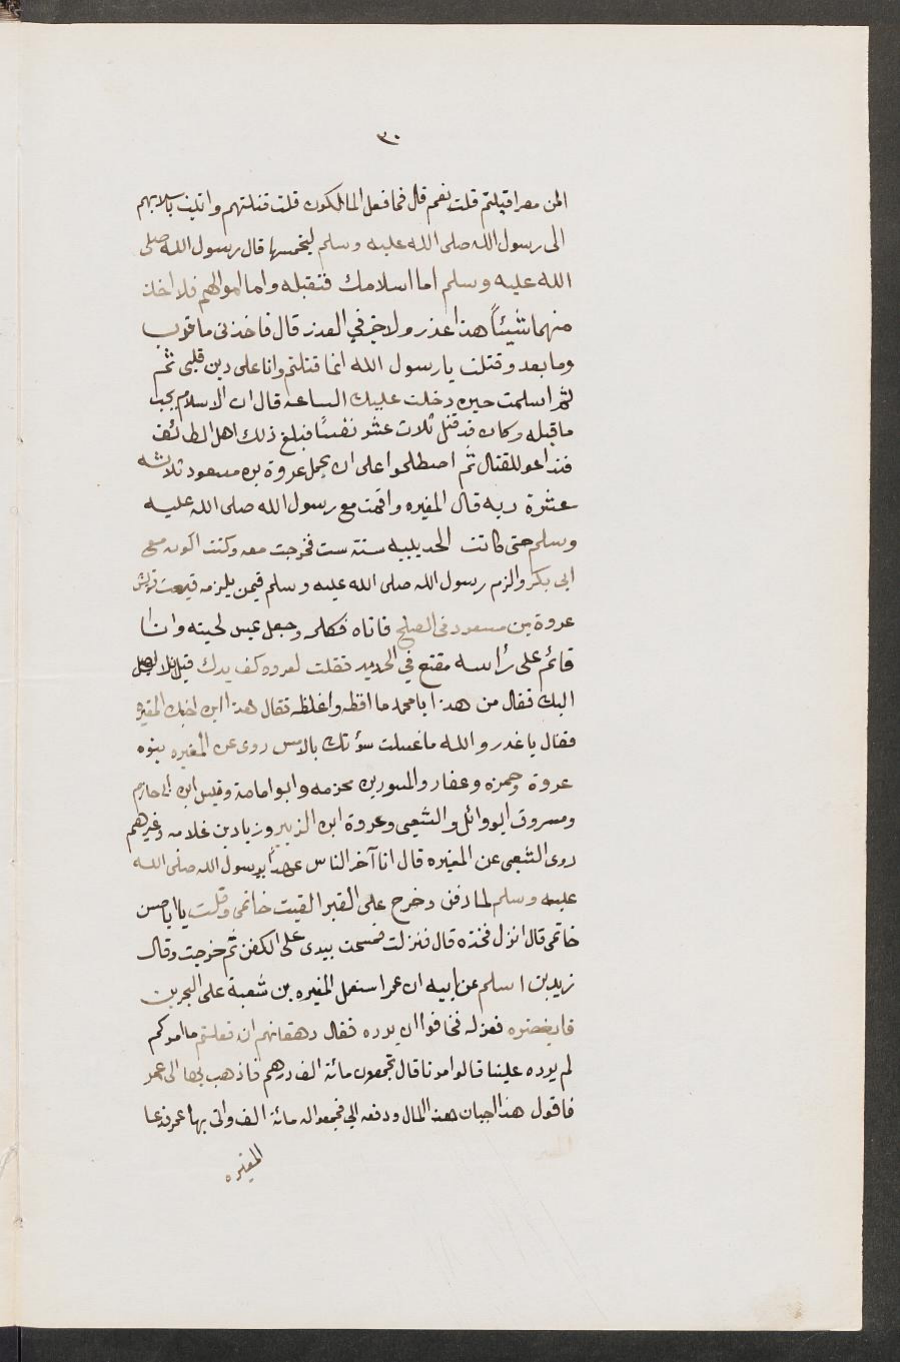 ٣٠
امن مصر اقبلتم قلت نعم قال فما فعل المالكون قلت قتلتهم واتيت باسلابهم
الى رسول الله صلى الله عليه وسلم ليخمسها قال رسول الله صلى
الله عليه وسلم اما اسلامك فنقبله واما اموالهم فلا اخذ
منهما شيئاً هذا غدر ولا خير في الغدر قال فاخذنى ما قرب
وما بعد وقتلت يا رسول الله انما قتلتم وانا على دين قلبى ثم
ثم اسلمت حين دخلت عليك الساعه قال ان الاسلام يجب
ما قبله وكان قد قتل ثلاث عشر نفسًا فبلغ ذلك اهل الطائف
فتداعو للقتال ثم اصطلحوا على ان يحمل عروة بن مسعود ثلاثه
عشرة ديه قال المغيره واقمت مع رسول الله صلى الله عليه
وسلم حتى كانت الحديبيه سنة ست فخرجت معه وكنت اكون مع
ابى بكر والزم رسول الله صلى الله عليه وسلم فيمن يلزمه فبعثت قريش
عروة بن مسعود فى الصلح فاتاه فكلمه وجعل يمس لحيته وانا
قائم على رأسه مقنع في الحديد فقلت لعروه كف يدك قبل ان لا تصل
اليك فقال من هذا يا محمد ما افظه واغلظه فقال هذا ابن اخيك المغيره
فقال يا غدر والله ما غسلت سؤتك بالامس روى عن المغيره بنوه
عروة وحمزه وعفار والمسور بن مخرمه وابو امامة وقيس ابن ابى حازم
ومسروق ابو وائل والشعبى وعروة ابن الزبير وزياد بن علامه وغيرهم
روى الشعبى عن المغيره قال انا آخر الناس عهداً برسول الله صلى الله
عليه وسلم لما دفن وخرج على القبر القيت خاتمى وقلت يا ابا حسن
خاتمى قال انزل فخذه قال فنزلت فمسحت بيدى على الكفن ثم خرجت وقال
زيد بن اسلم عن ابيه ان عمر استعمل المغيره بن شعبة على البحرين
فابغضوه فعزله فخافوا ان يرده فقال دهقانهم ان فعلتم ما امركم
لم يرده علينا قالوا مرنا قال تجمعون مائة الف درهم فاذهب بها الى عمر
فاقول هذا اجبان هذا المال ودفعه الي فجمعوا له مائة الف واتى بها عمر فدعا
المغيره